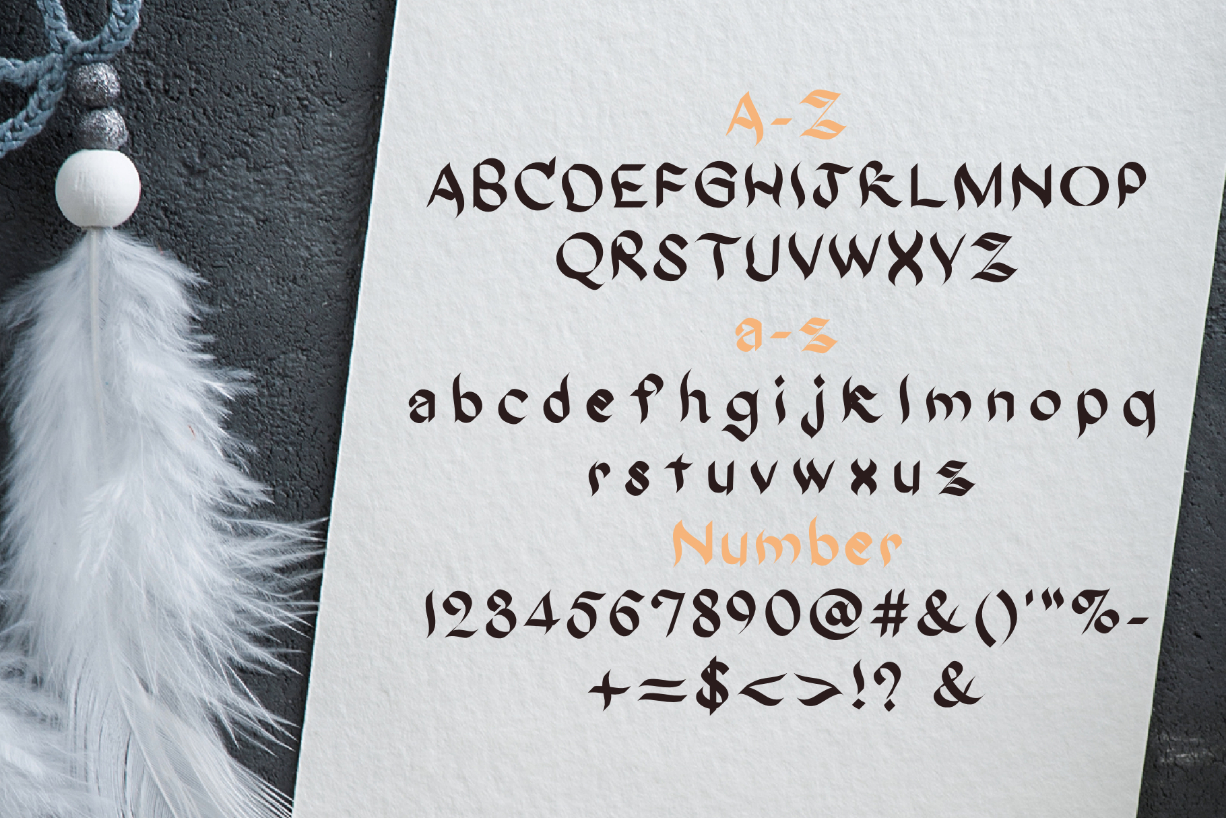 A-Z
ABCDEFGHIJKLMNOP
QRSTUVWXYZ
a-z
a b c d e f h g i j k l m n o p q
r s t u v w x u z
Number
1234567890@#&()'"%-
+=$<>!? &